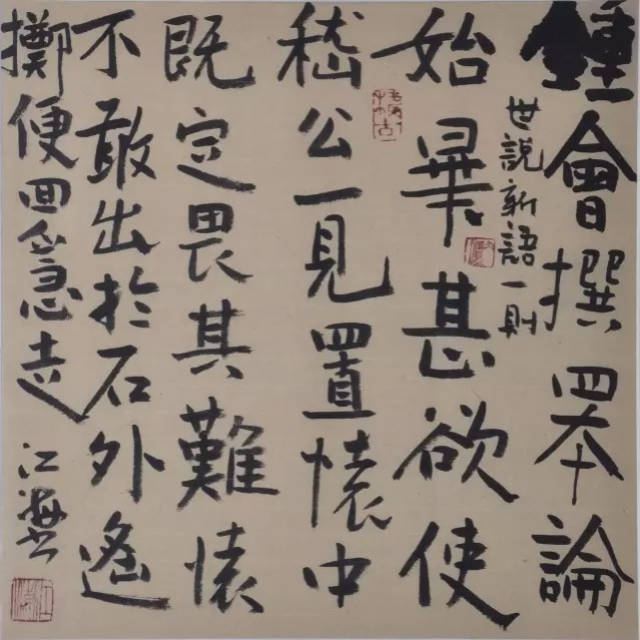 鍾會撰四本論
世說新語一則
始畢甚欲使
嵇公一見置懷中
既定畏其難懷
不敢出於石外遙
擲便回急走
江海